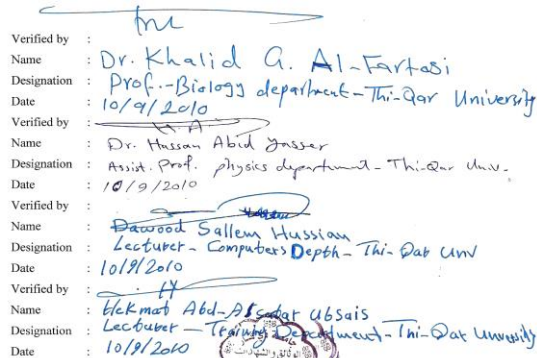 Verified by :
Name : Dr. Khalid G. Al-Fartosi
Designation : Prof.-Biology department-Thi-Qar University
Date : 10/9/2010
Verified by : H.A
Name : Dr. Hassan Abid Yasser
Designation : Assist. Prof. physics department- Thi-Qar Univ.
Date : 10/9/2010
Verified by :
Name : Dawood Sallem Hussian
Designation : Lecturer- Computers Depth- Thi-Qar Univ
Date : 10/9/2010
Verified by :
Name : Hekmat Abd-Al
Designation : Lecturer - Training Department-Thi-Qar University
Date : 10/9/2010